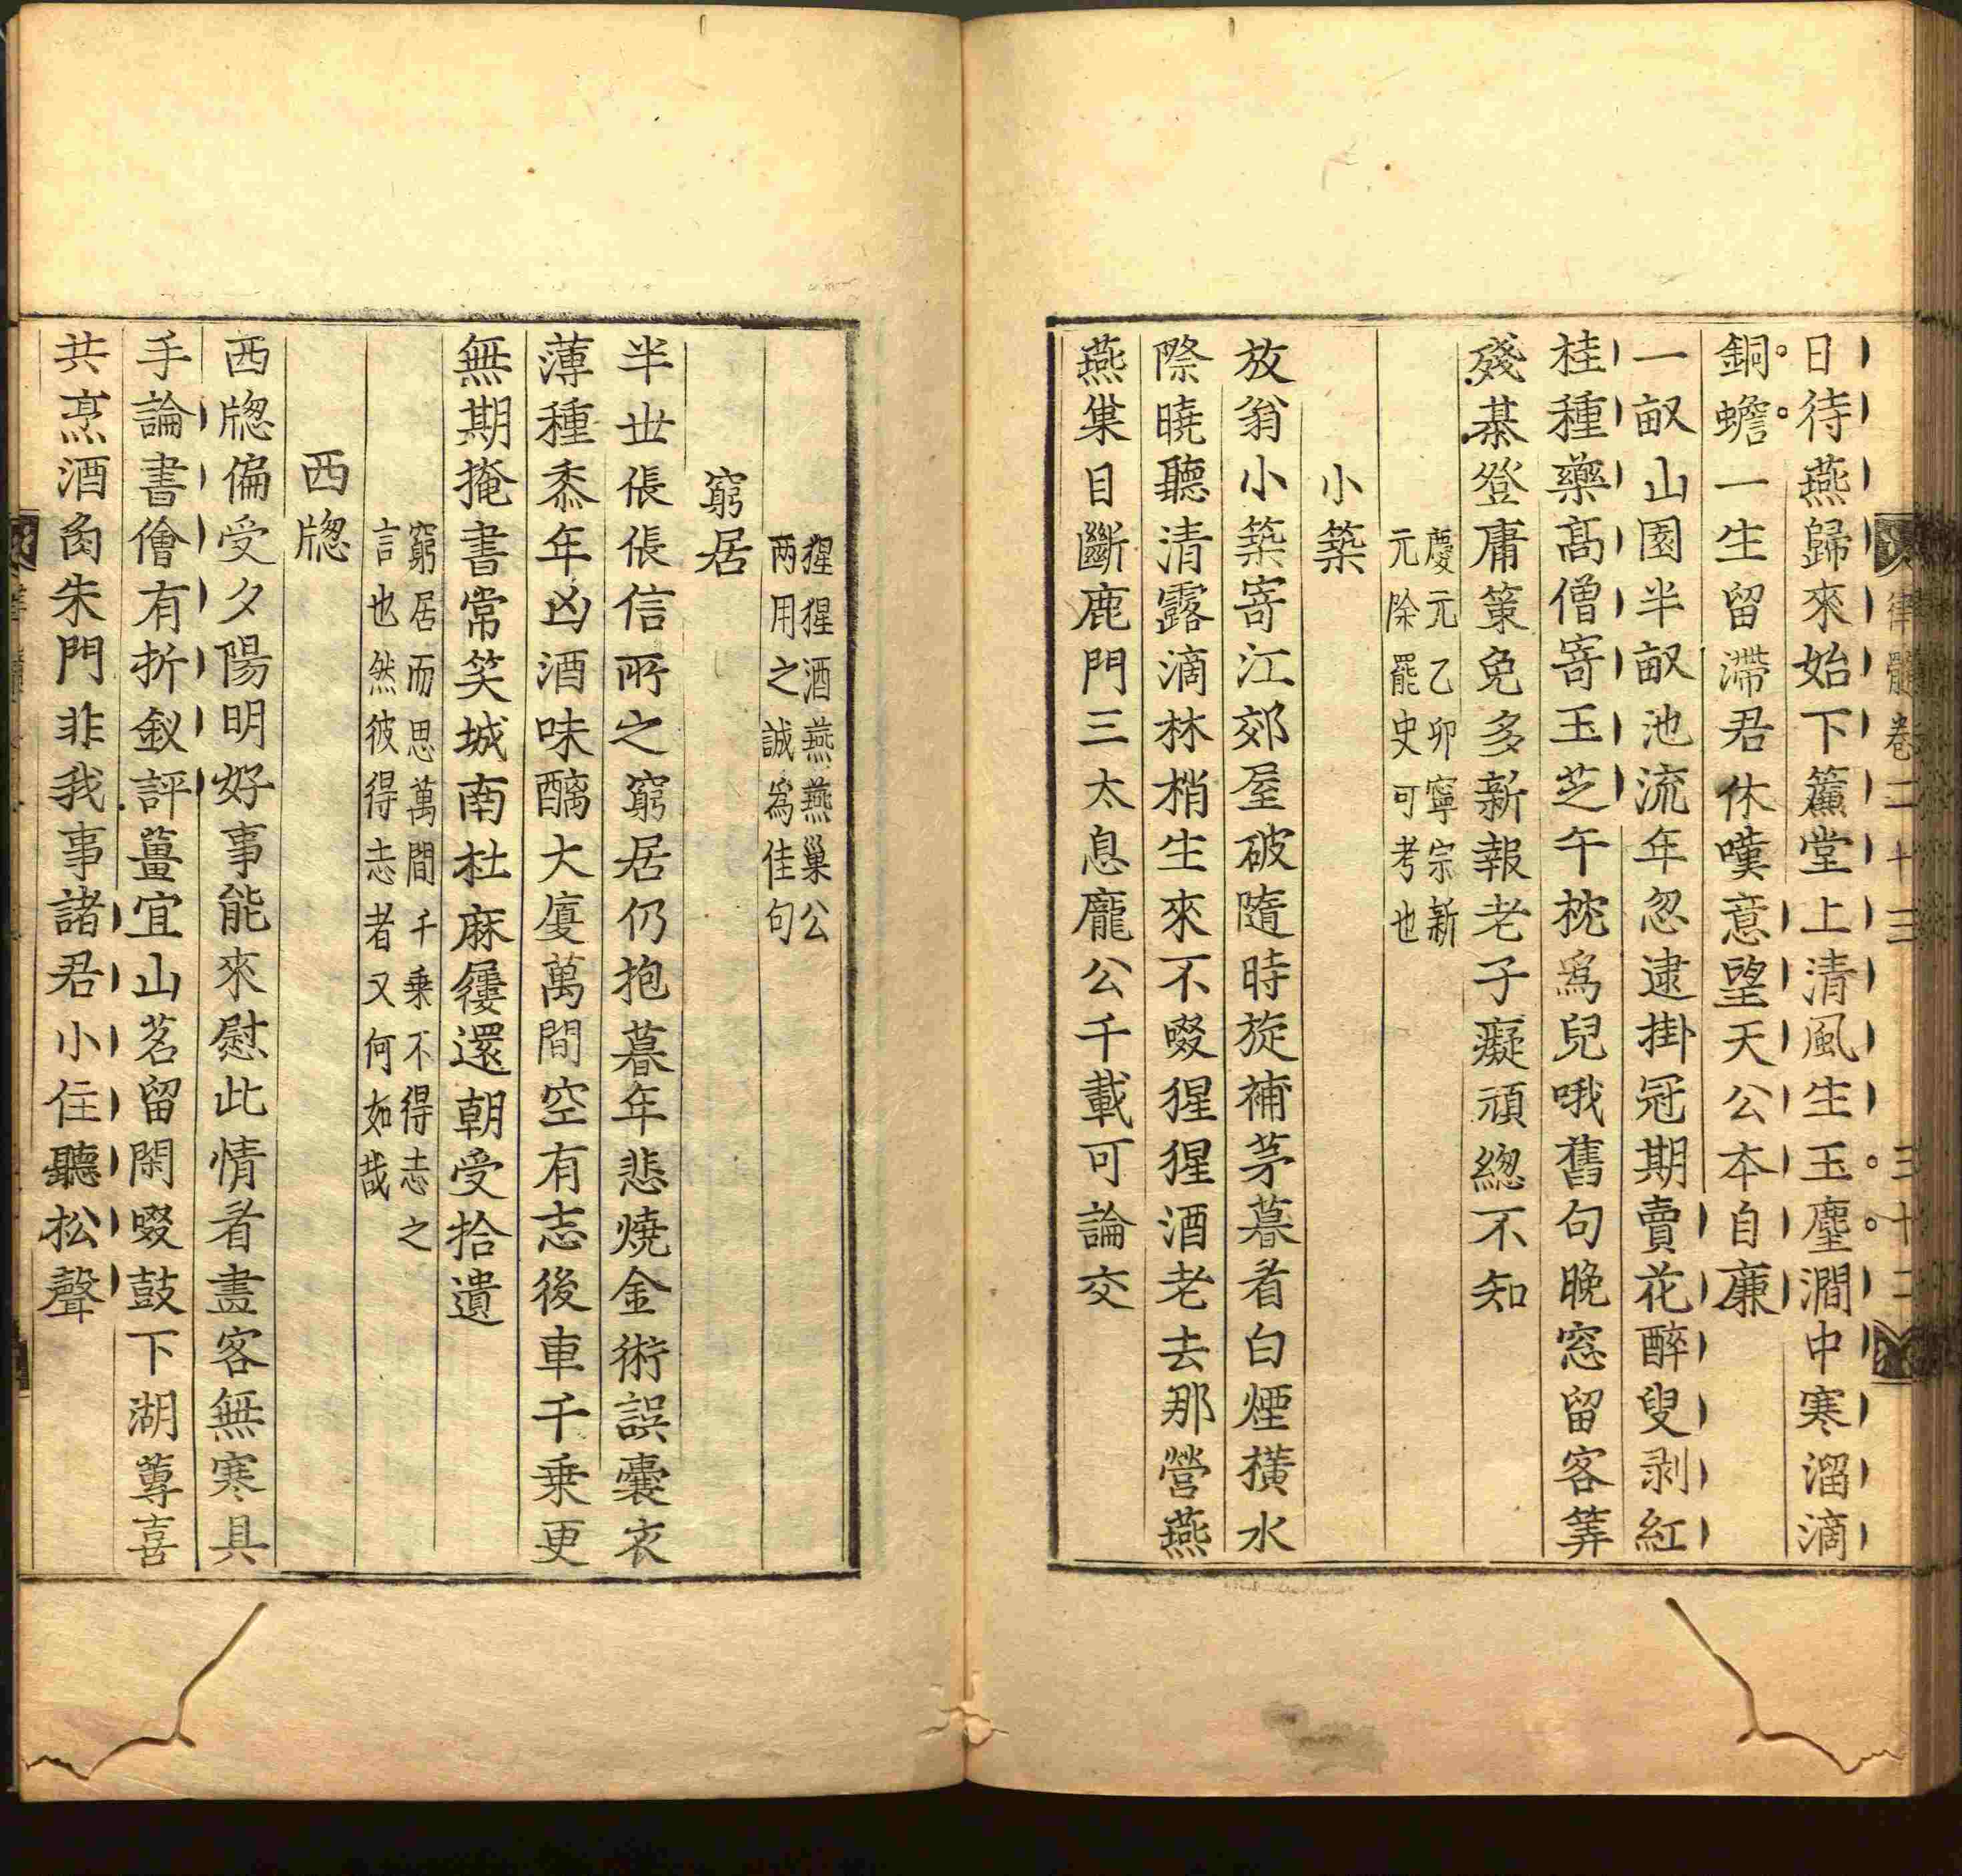 律髓卷二十三 三十二
日待燕歸來始下簾堂上清風生玉麈澗中寒溜滴
銅蟾一生留滯君休嘆意望天公本自廉
一畝山園半畝池流年忽逮掛冠期賣花醉叟剥紅
桂種藥髙僧寄玉芝午枕爲兒哦舊句晚窓留客筭
殘棊登庸策免多新報老子癡頑緫不知
慶元乙卯寧宗新
元除罷史可考也
小築
放翁小築寄江郊屋破隨時旋補茅暮看白煙橫水
際曉聽清露滴林梢生來不啜猩猩酒老去那營燕
燕巢目斷鹿門三太息龐公千載可論交
猩猩酒燕燕巢公
两用之誠爲佳句
窮居
半世倀倀信所之窮居仍抱暮年悲燒金術誤囊衣
薄種黍年凶酒味醨大廈萬間空有志後車千乗更
無期掩書常笑城南杜麻屨還朝受拾遺
窮居而思萬間千乗不得志之
言也然彼得志者又何如哉
西牕
西牕偏受夕陽明好事能來慰此情看畫客無寒具
手論書僧有折釵評薑宜山茗留閑啜豉下湖蓴喜
共烹酒臠朱門非我事諸君小住聽松聲